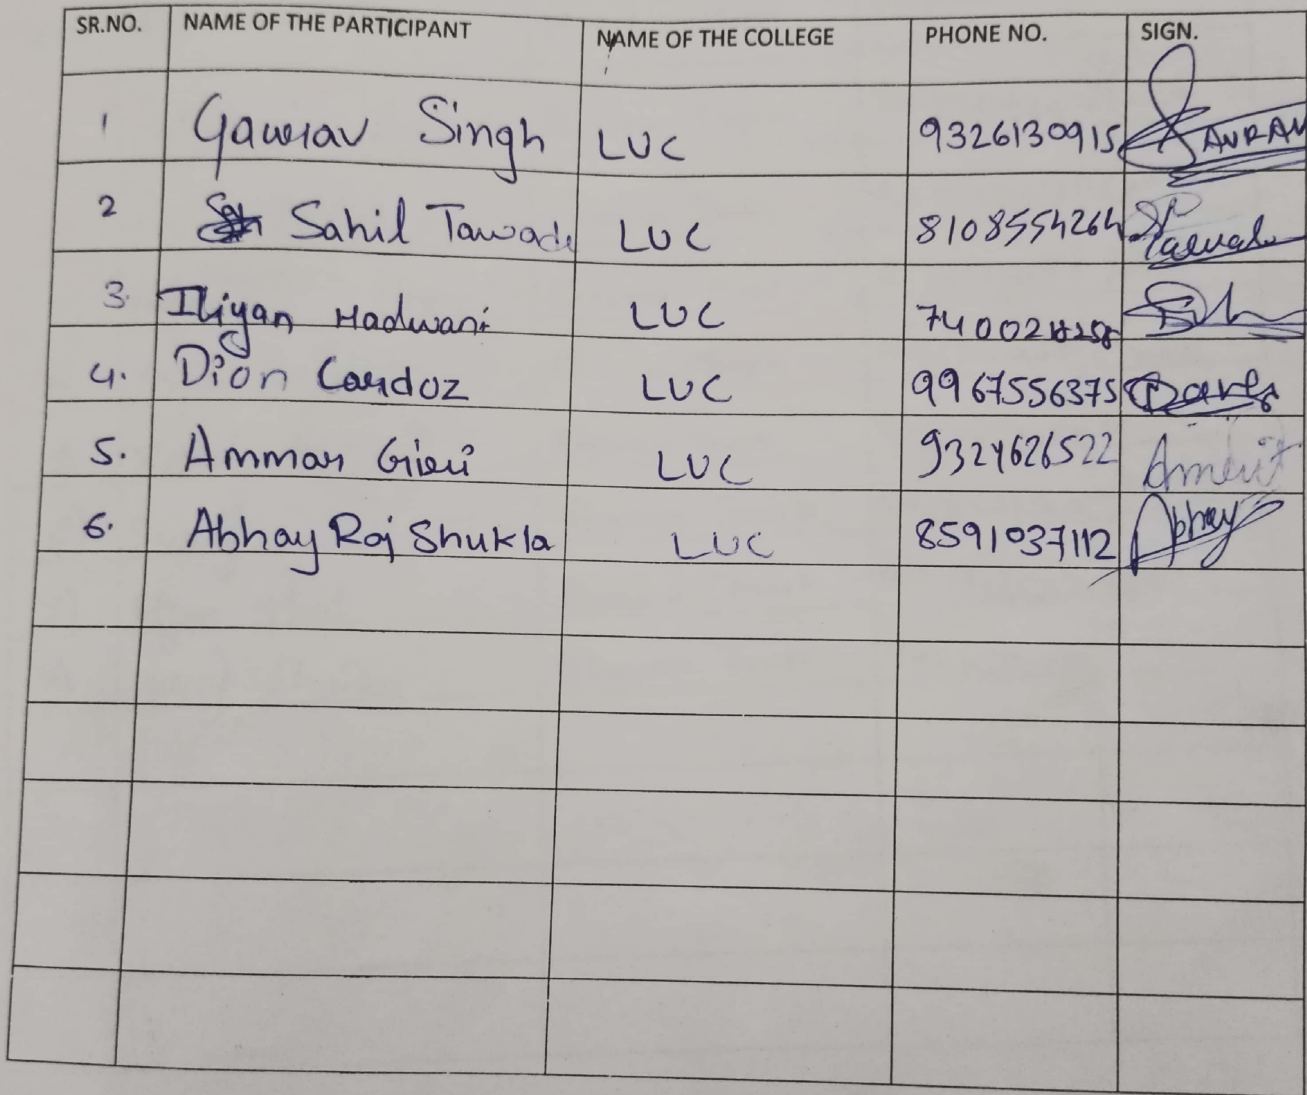 SR.NO. NAME OF THE PARTICIPANT NAME OF THE COLLEGE PHONE NO. SIGN.
1 Gaurav Singh LUC 9326130915 GAURAV
2 Sahil Tawade LUC 8108554264
3. Iliyan Hadwani LUC
4. Dion Cardoz LUC 9967556375
5. Ammar Giri LUC 9324626522
6. Abhay Raj Shukla LUC 8591037112 Abhay